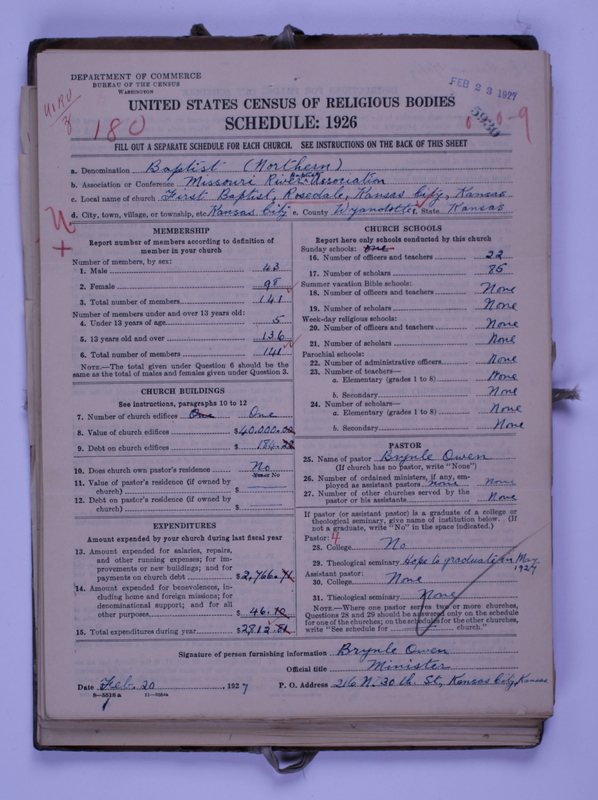 DEPARTMENT OF COMMERCE
BUREAU OF THE CENSUS
WASHINGTON
FEB 23 1927
5930
0-9
180
UNITED STATES CENSUS OF RELIGIOUS BODIES
SCHEDULE: 1926
FILL OUT A SEPARATE SCHEDULE FOR EACH CHURCH. SEE INSTRUCTIONS ON THE BACK OF THIS SHEET
a. Denomination Baptist (Northern)
b. Association or Conference Missouri River Baptist Association
c. Local name of church First Baptist, Rosedale, Kansas City, Kansas
d. City, town, village, or township, etc. Kansas City e. County Wyandotte f. State Kansas
MEMBERSHIP
Report number of members according to definition of
member in your church
Number of members, by sex:
1. Male 43
2. Female 98
3. Total number of members 141
Number of members under and over 13 years old:
4. Under 13 years of age 5
5. 13 years old and over 136
6. Total number of members 141
NOTE.—The total given under Question 6 should be the
same as the total of males and females given under Question 3.
CHURCH BUILDINGS
See instructions, paragraphs 10 to 12
7. Number of church edifices One One
8. Value of church edifices $40,000.00
9. Debt on church edifices $ 184.28
10. Does church own pastor's residence No
Yes or No
11. Value of pastor's residence (if owned by
church) $
12. Debt on pastor's residence (if owned by
church) $
EXPENDITURES
Amount expended by your church during last fiscal year
13. Amount expended for salaries, repairs,
and other running expenses; for im-
provements or new buildings; and for
payments on church debt $2,766.71
14. Amount expended for benevolences, in-
cluding home and foreign missions; for
denominational support; and for all
other purposes $ 46.10
15. Total expenditures during year $2812.81
CHURCH SCHOOLS
Report here only schools conducted by this church
Sunday schools: One
16. Number of officers and teachers 22
17. Number of scholars 85
Summer vacation Bible schools:
18. Number of officers and teachers None
19. Number of scholars None
Week-day religious schools:
20. Number of officers and teachers None
21. Number of scholars None
Parochial schools:
22. Number of administrative officers None
23. Number of teachers—
a. Elementary (grades 1 to 8) None
b. Secondary None
24. Number of scholars—
a. Elementary (grades 1 to 8) None
b. Secondary None
PASTOR
25. Name of pastor Brynle Owen
(If church has no pastor, write "None")
26. Number of ordained ministers, if any, em-
ployed as assistant pastors None None
27. Number of other churches served by the
pastor or his assistants None
If pastor (or assistant pastor) is a graduate of a college or
theological seminary, give name of institution below. (If
not a graduate, write "No" in the space indicated.)
Pastor: 4
28. College No
29. Theological seminary Hope to graduate in May
1927
Assistant pastor:
30. College None
31. Theological seminary None
NOTE.—Where one pastor serves two or more churches,
Questions 28 and 29 should be answered only on the schedule
for one of the churches; on the schedule for the other churches,
write "See schedule for church."
Signature of person furnishing information Brynle Owen
Official title Minister
Date Feb. 20, 1927 P. O. Address 216 N. 30 th. St, Kansas City, Kansas